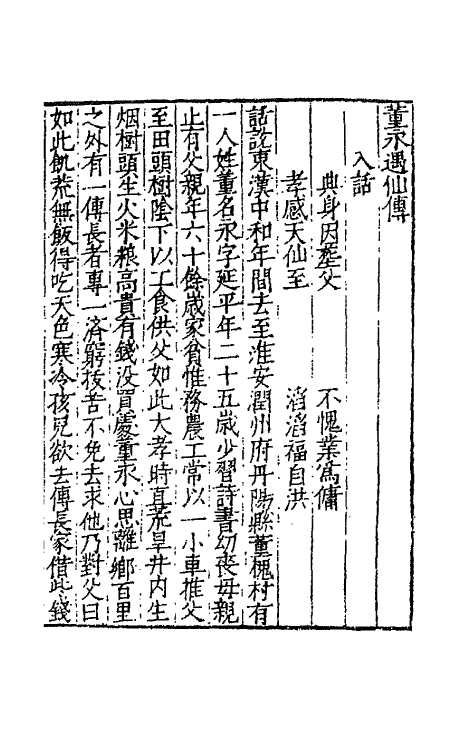 董永遇仙傳
入話
典身因塟父　不愧業為傭
孝感天仙至　滔滔福自洪
話說東漢中和年間去至淮安潤州府丹陽縣董槐村有
一人姓董名永字延平年二十五歲少習詩書幼喪母親
止有父親年六十餘歲家貧惟務農工常以一小車推父
至田頭樹陰下以工食供父如此大孝時直荒旱井内生
烟樹頭生火米粮高貴有錢没買處董永心思離鄉百里
之外有一傳長者專一濟窮拔苦不免去求他乃對父曰
如此飢荒無飯得吃天色寒冷孩兒欲去傳長家借些錢